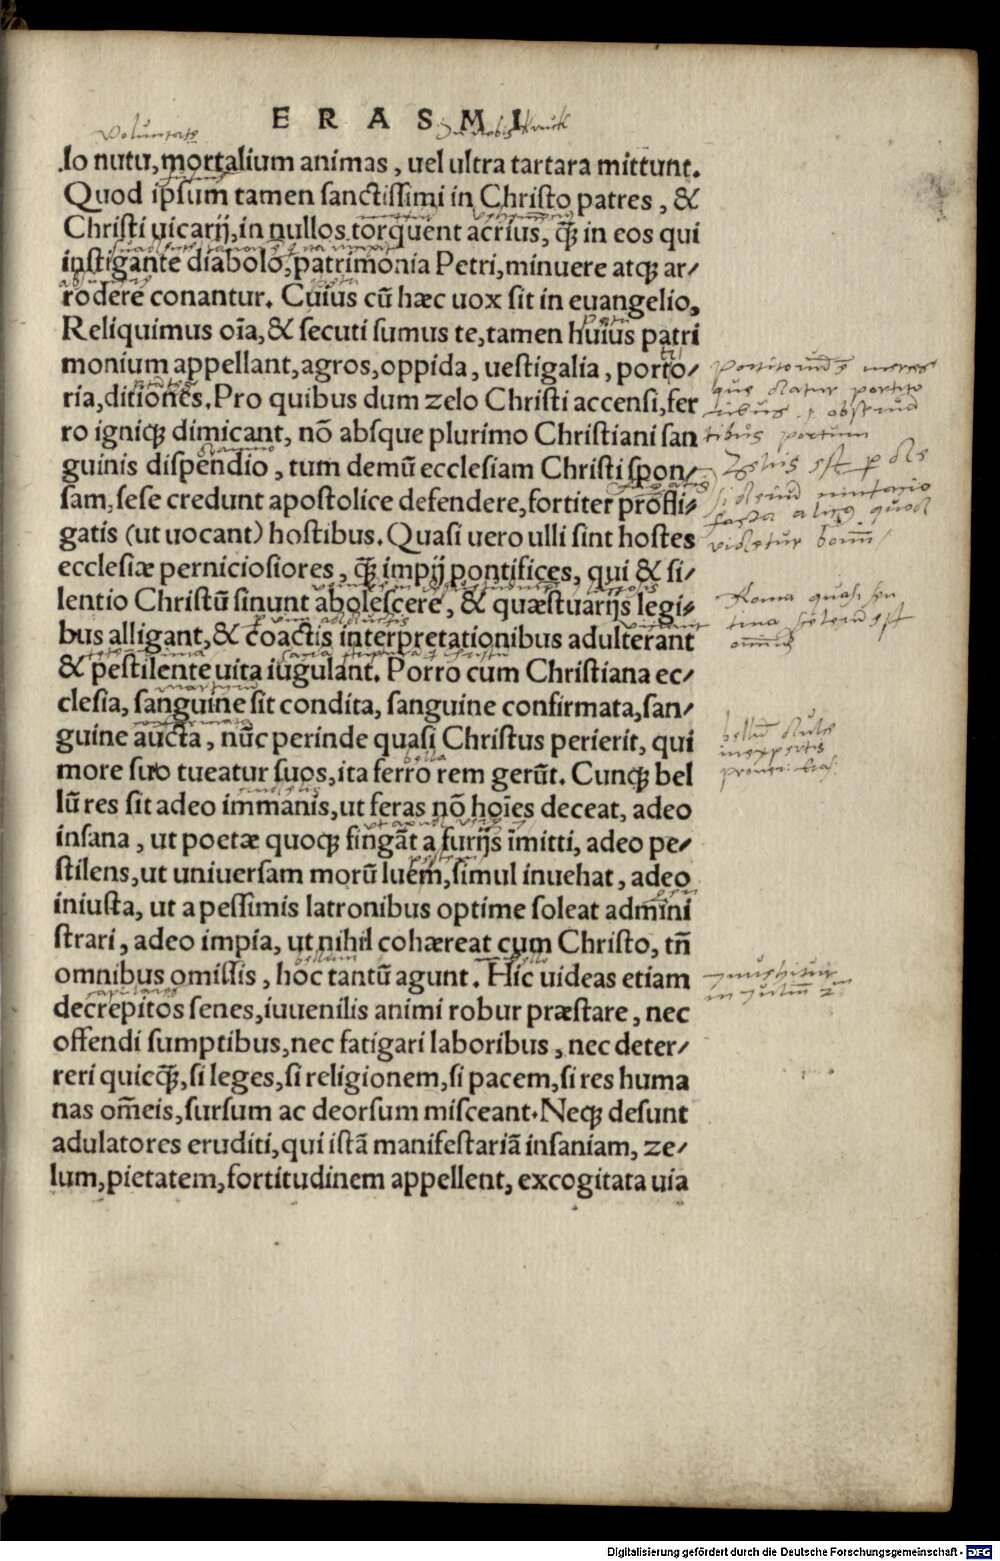 ERASMI
voluntate
.lo nutu, mortalium animas, uel ultra tartara mittunt.
Quod ipsum tamen sanctissimi in Christo patres, &
Christi uicarij, in nullos torquent acrius, q̃ꝫ in eos qui
instigante diabolo, patrimonia Petri, minuere atqꝫ ar⸗
rodere conantur. Cuius cū hæc uox sit in euangelio,
Reliquimus oīa, & secuti sumus te, tamen huius patri
monium appellant, agros, oppida, uestigalia, porto⸗
ria, ditiones. Pro quibus dum zelo Christi accensi, fer
ro igniqꝫ dimicant, nō absque plurimo Christiani san
guinis dispendio, tum demū ecclesiam Christi spon⸗
sam, sese credunt apostolice defendere, fortiter profli⸗
gatis (ut uocant) hostibus. Quasi uero ulli sint hostes
ecclesiæ perniciosiores, q̃ꝫ impij pontifices, qui & si⸗
lentio Christū sinunt abolescere, & quæstuarijs legi⸗
bus alligant, & coactis interpretationibus adulterant
& pestilente uita iugulant. Porro cum Christiana ec⸗
clesia, sanguine sit condita, sanguine confirmata, san⸗
guine aucta, nūc perinde quasi Christus perierit, qui
more suo tueatur suos, ita ferro rem gerūt. Cunqꝫ bel
lū res sit adeo immanis, ut feras nō hoīes deceat, adeo
insana, ut poetæ quoqꝫ fingāt a furijs īmitti, adeo pe⸗
stilens, ut uniuersam morū luem, simul inuehat, adeo
iniusta, ut a pessimis latronibus optime soleat admini
strari, adeo impia, ut nihil cohæreat cum Christo, tñ
omnibus omissis, hoc tantū agunt. Hic uideas etiam
decrepitos senes, iuuenilis animi robur præstare, nec
offendi sumptibus, nec fatigari laboribus, nec deter⸗
reri quicq̃ꝫ, si leges, si religionem, si pacem, si res huma
nas om̄eis, sursum ac deorsum misceant. Neqꝫ desunt
adulatores eruditi, qui istā manifestariā insaniam, ze⸗
lum, pietatem, fortitudinem appellent, excogitata uia
que datur portito
tibus portum
Roma quasi sen
bellū dulce
inexpertis
Digitalisierung gefördert durch die Deutsche Forschungsgemeinschaft - DFG